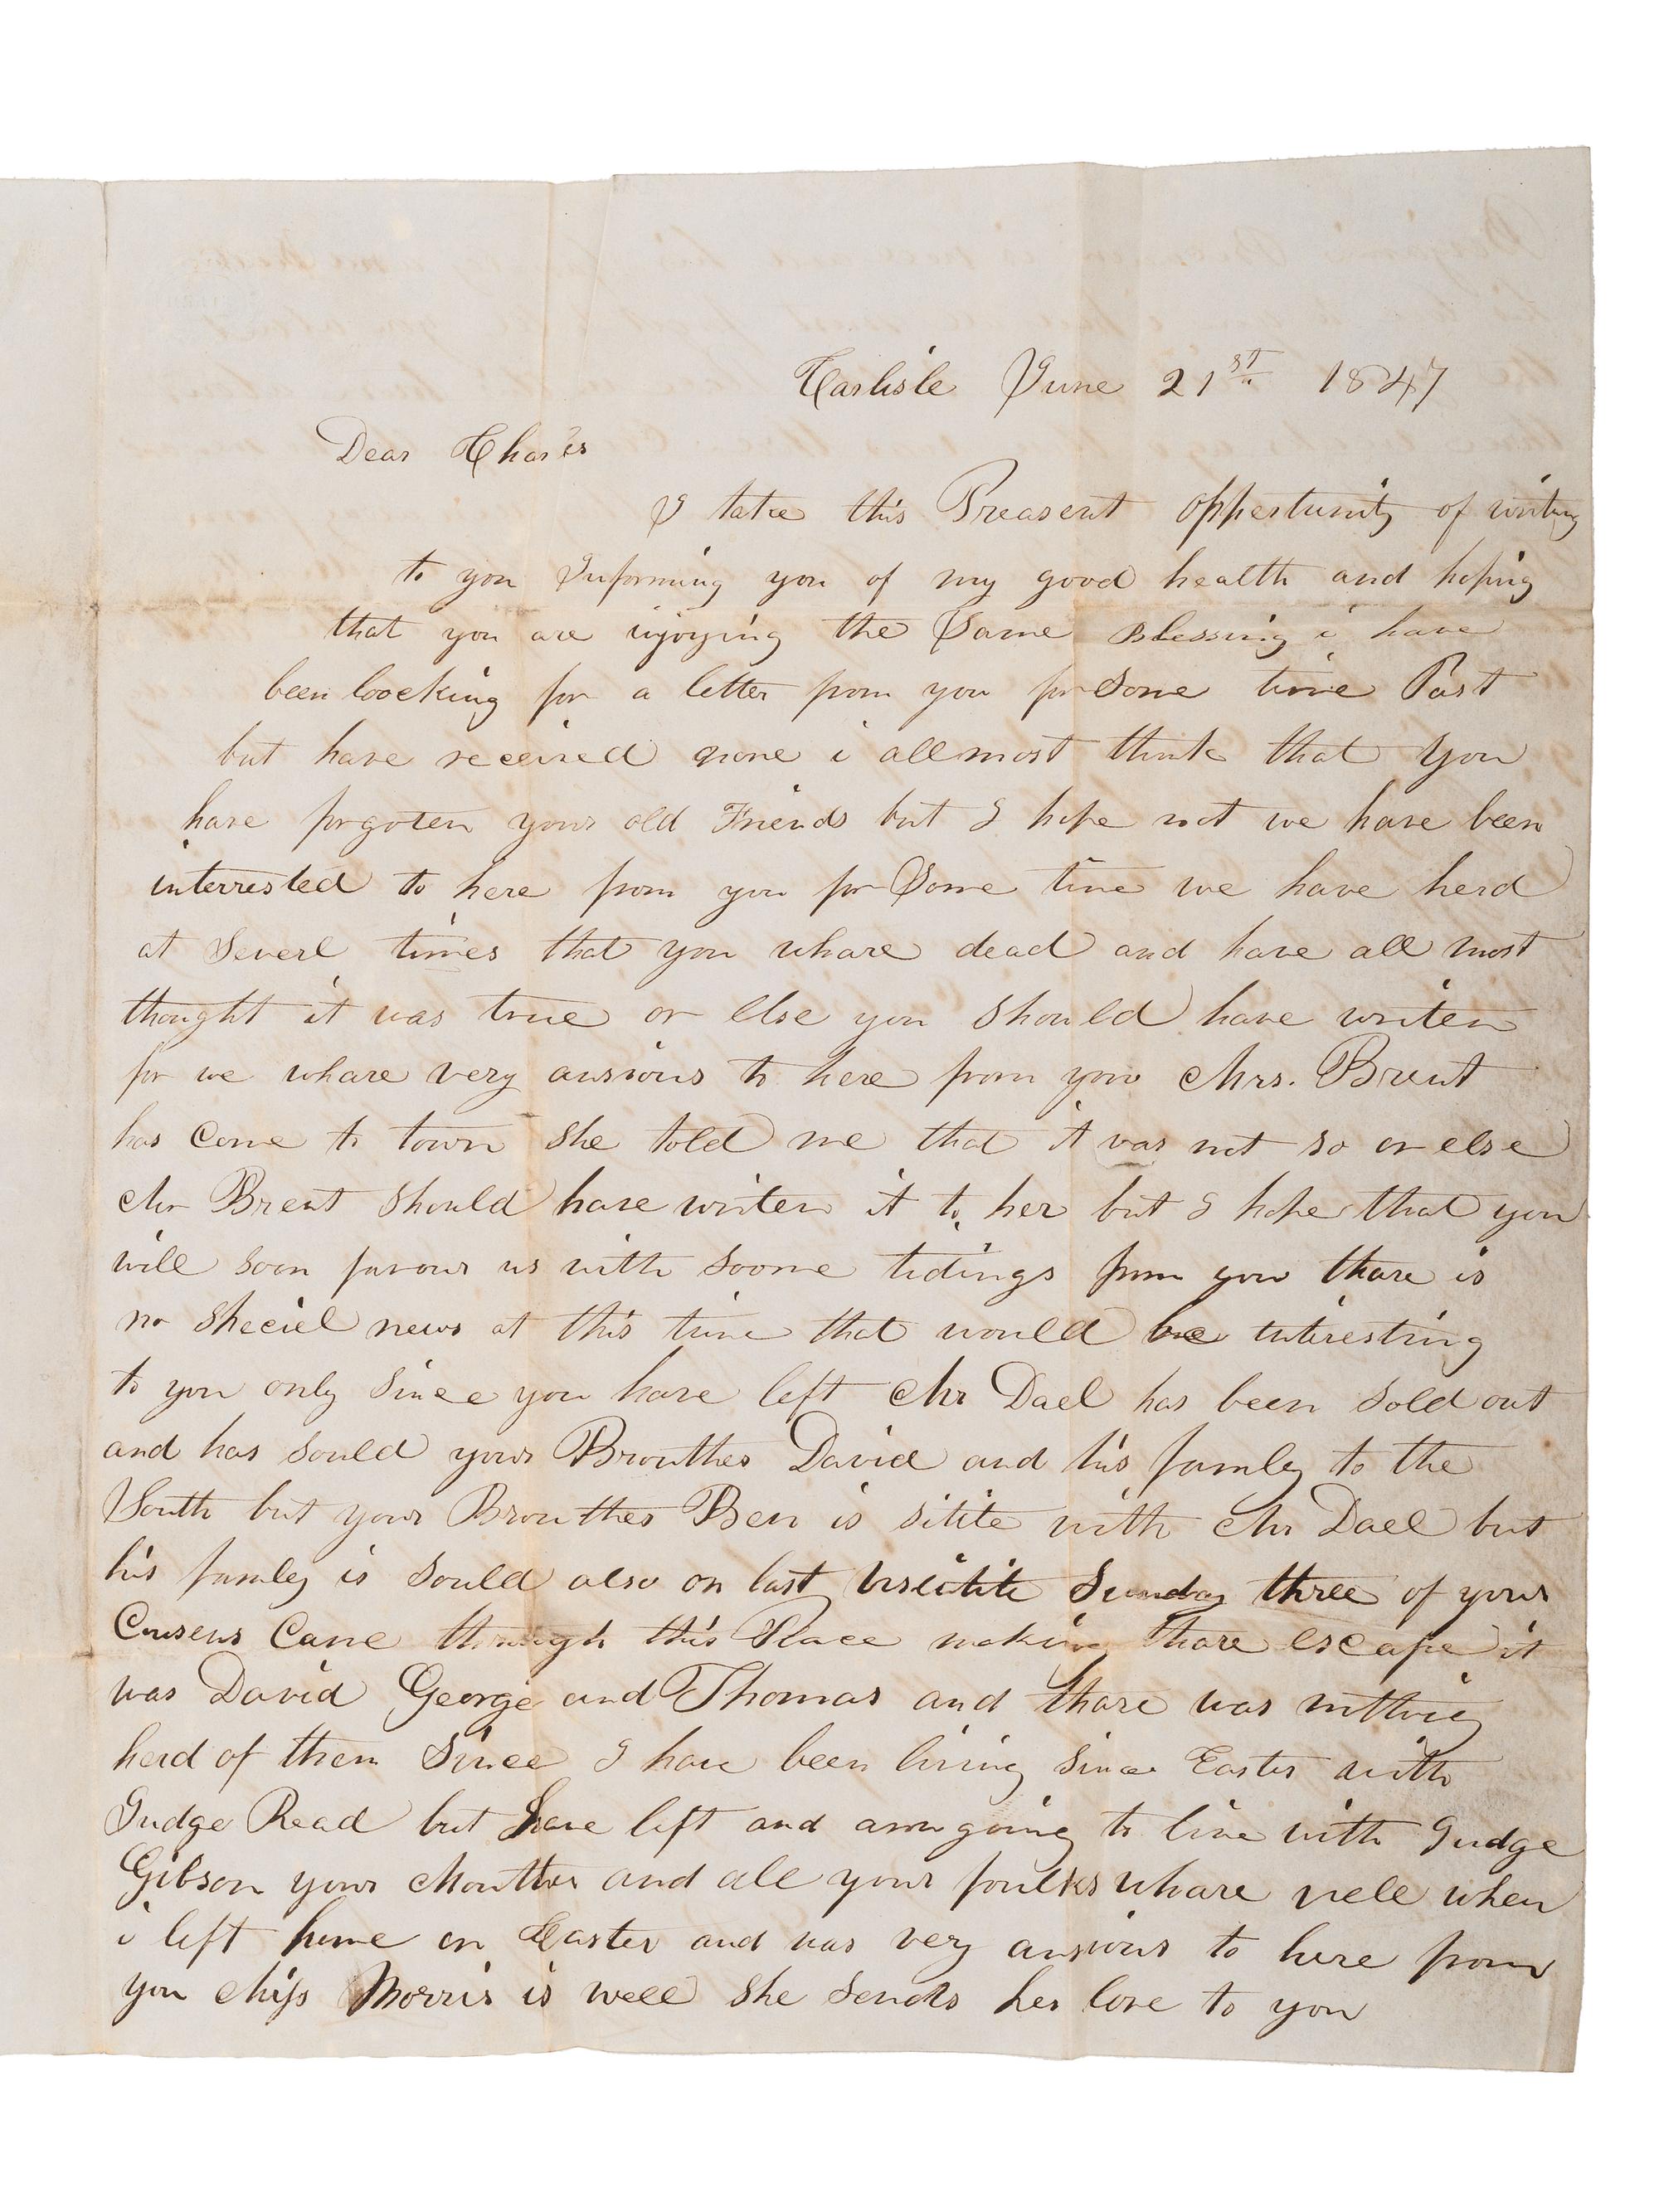 Carlisle June 21st 1847
Dear Charles
I take this Preasent oppertunity of writing
to you Informing you of my good health and hoping
that you are injoying the Same Blessing i have
been loocking for a letter from you for Some time Past
but have received none i allmost think that you
have forgoten your old Friends but I hope not we have been
interrested to here from you for Some time we have herd
at Severl times that you whare dead and have all most
thought it was true or else you should have writen
for we whare very ansious to here from you Mrs. Brent
has Come to town she told me that it was not so or else
Mr Brent should have writen it to her but I hope that you
will soon favour us with soome tidings from you thare is
no speciel news at this time that would be interesting
to you only since you have left Mr Dael has been sold out
and has sould your Brouther David and his famley to the
South but your Brouther Ben is stite with Mr Dael but
his famley is sould also on last Sunday three of your
Cousens Came through this Place making thare escape it
was David George and Thomas and thare was nothing
herd of them Since I have been living since Easter with
Judge Read but have left and am going to live with Judge
Gibson your Mouther and all your foulks whare well when
i left home on Easter and was very ansious to here from
you Miss Morris is well she sends her love to you